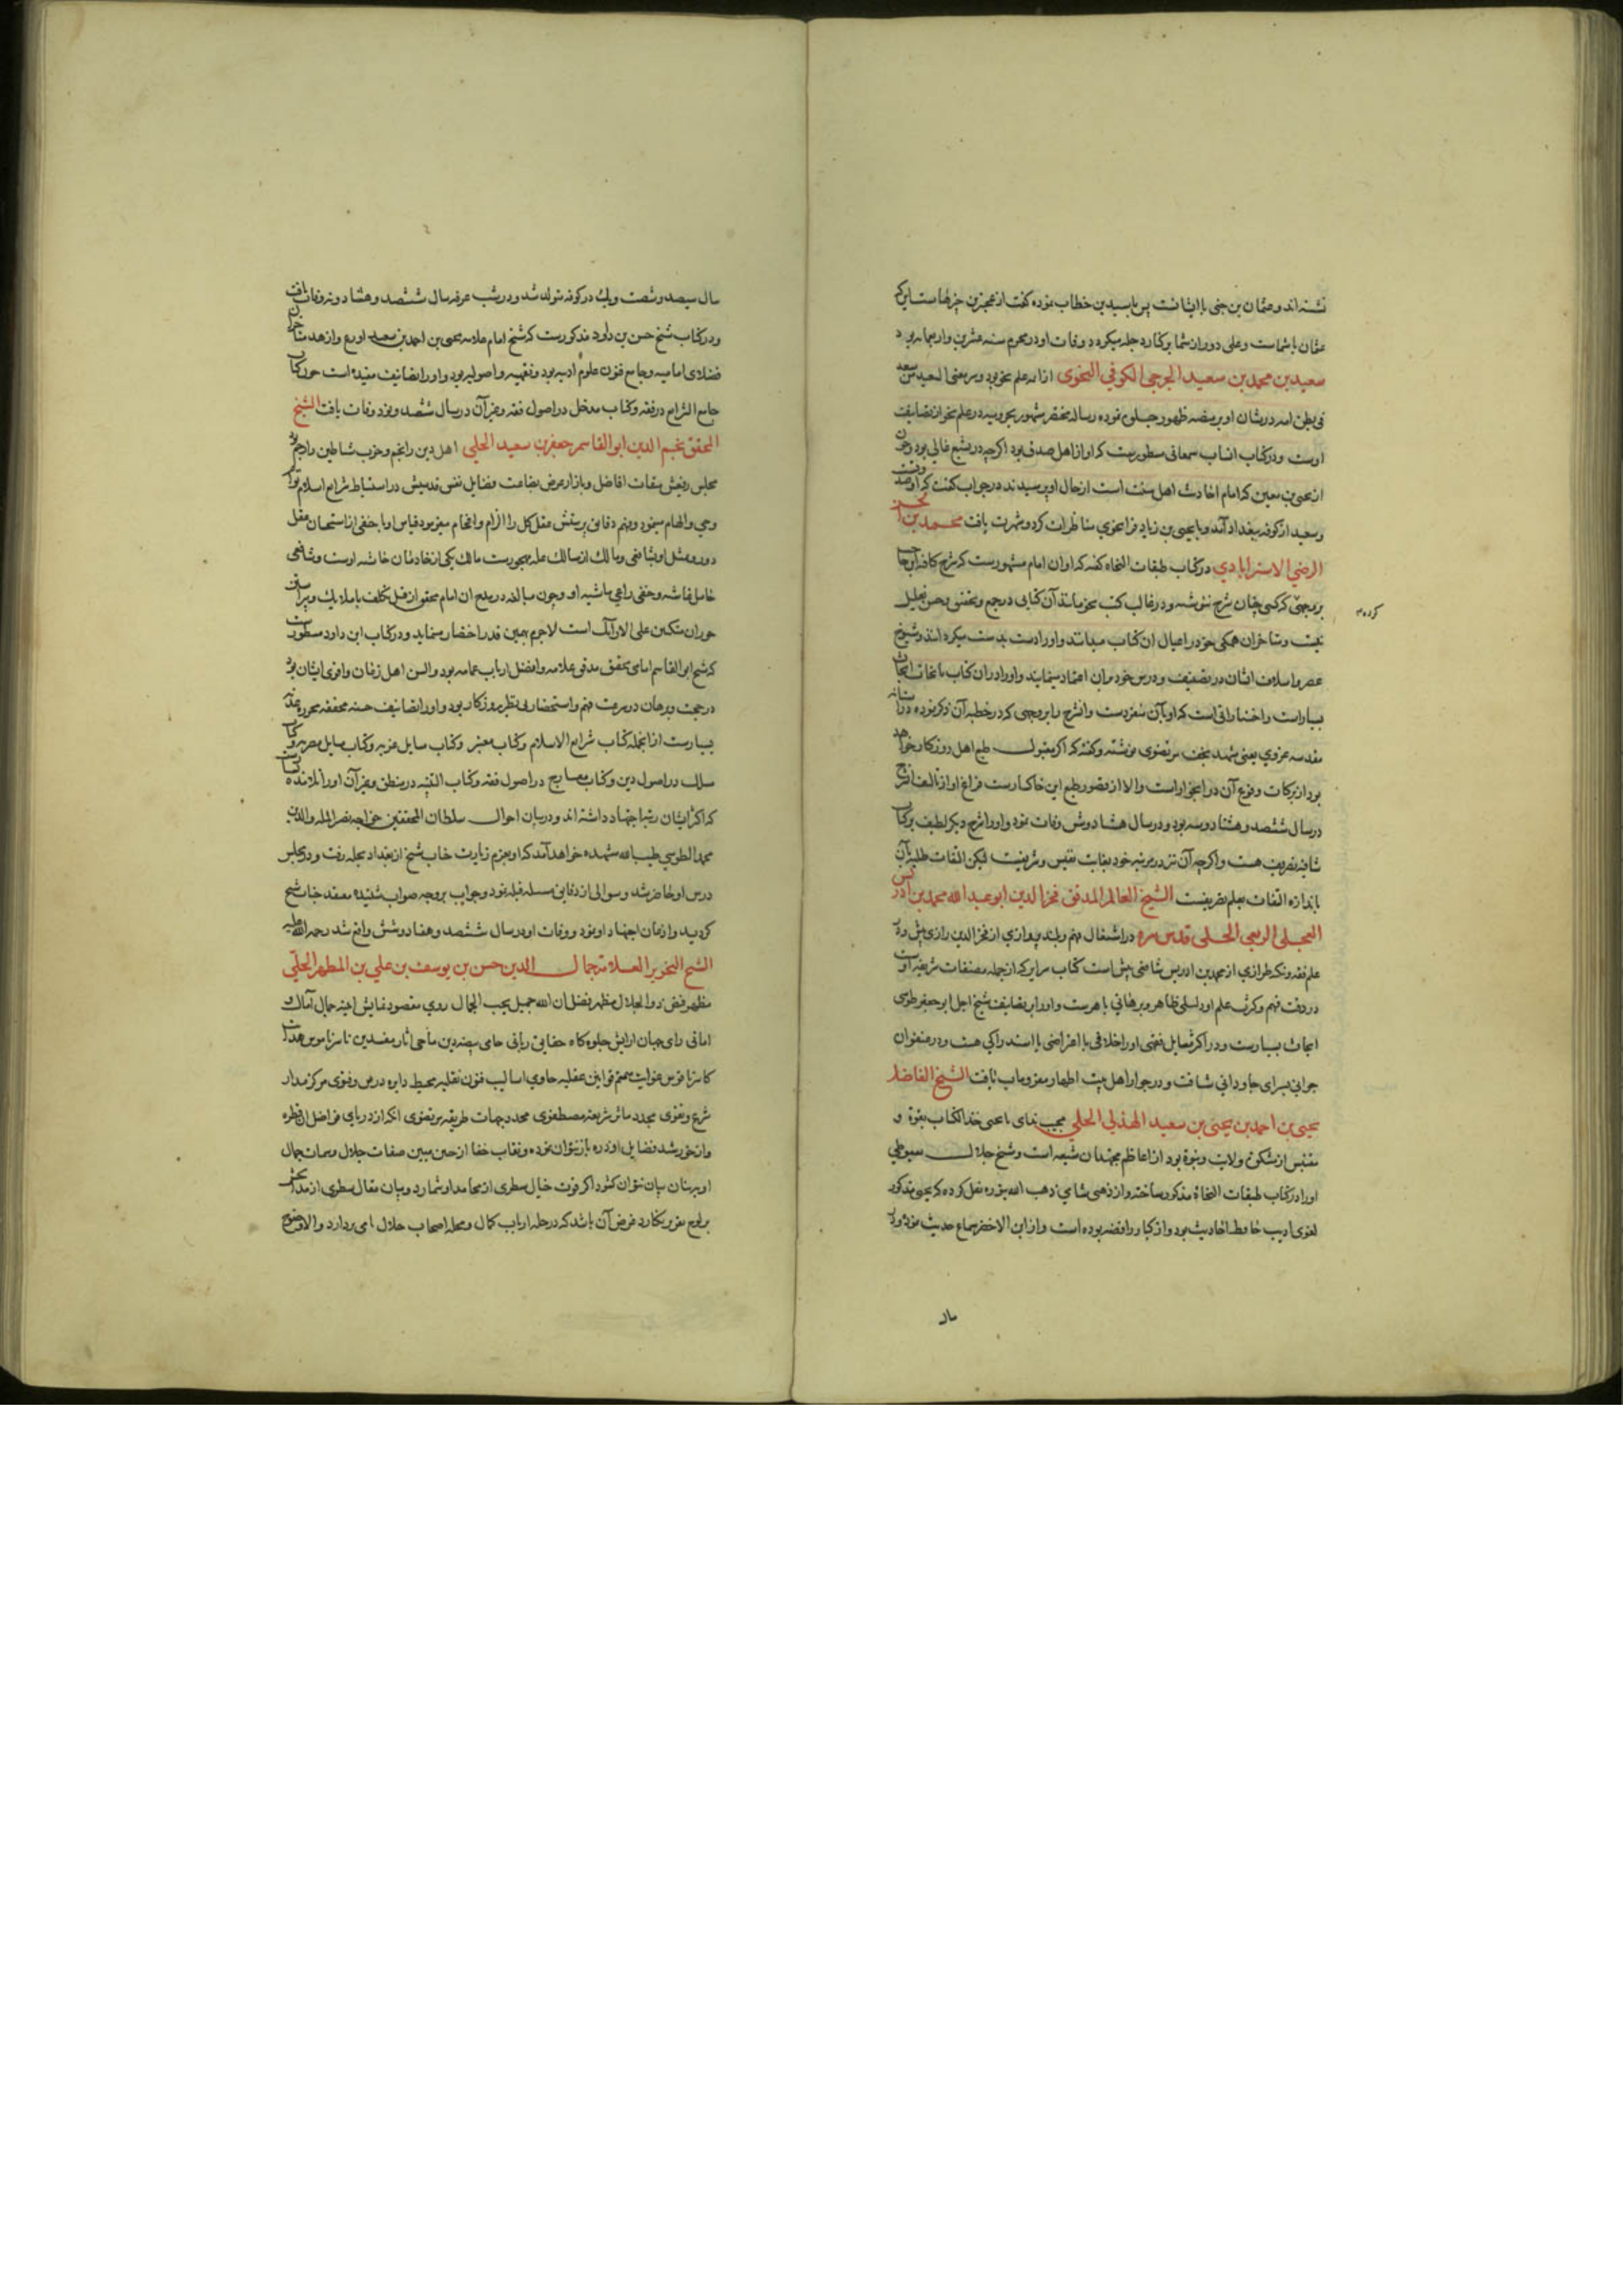 نشسته‌اند و عثمان بن جنی با ایشانست پس با سید بن خطاب نموده گفت از عجیترین چیزها ست این که
عثمان با شماست و علی دور از شما بر کنار دجله میگردد و وفات او در محرم سنه عشرین و اربعمائه بود
سعید بن محمد بن سعید الجرمی الکوفی النحوی از ائمه علم نحو بود و سر معنی السعید من سعد
فی بطن امه در شان او بر منصه ظهور جلوه نموده رساله مختصر مشهور بجرمیه در علم نحو از تصانیف
اوست و در کتاب انساب سمعانی مسطور است که او از اهل صدق بود اگر چه در تشیع غالی بود و چون
از یحیی بن معین که امام احادیث اهل سنت است از حال او پرسیدند در جواب گفت که او صدوقست
و سعید از کوفه ببغداد آمد و با یحیی بن زیاد فراء نحوی مناظرات کرد و شهرت یافت محمد بن الحسن
الرضی الاسترابادی در کتاب طبقات النحاة گفته که او آن امام مشهور است که شرح کافیه ابن حاجب
بر وجهی کرد که کسی چنان شرح ننوشته و در غالب کتب نحو مانند آن کتابی در جمع و تحقیق و حسن تعلیل
نیست و متاخران همگی خود را عیال آن کتاب میدانند و او را دست بدست میگردانند و شیوخ
عصر و اسلاف ایشان در تصنیف و درس خود بر آن اعتماد مینمایند و او را در آن کتاب با نحات ابحاث
بسیار است و اختیاراتی است که او بآن متفرد است و آن شرح را بر وجهی که در خطبه آن ذکر نموده در آستانه
مقدسه غروی یعنی مشهد نجف مرتضوی نوشته و گفته که اگر مقبول طبع اهل روزگار خواهد
بود از برکات وقوع آن در آنجا است و الا از قصور طبع این خاکسار است فراغ او از تالیف شرح
در سال ششصد و هشتاد و سه بود و در سال هشتاد و شش وفات نمود و او را شرح دیگر لطیف بر کتاب
شافیه تصریف هست و اگر چه آن نیز در مرتبه خود بغایت نفیس و شریفست لیکن التفات طلبه بآن
باندازه التفات بعلم تصریفست الشیخ العالم المدقق فخر الدین ابو عبد الله محمد بن ادریس
العجلی الربعی الحلی قدس سره در اشتغال فهم و بلند پروازی از فخر الدین رازی پیش و در
علم فقه و نکته طرازی از محمد بن ادریس شافعی بیش است کتاب سرایر که از جمله مصنفات شریفه اوست
در دقت فهم و کثرت علم او دلیلی ظاهر و برهانی باهر است و او را بر تصانیف شیخ اجل ابو جعفر طوسی
ابحاث بسیار است و در اکثر مسایل فقهی او را خلافی یا اعتراضی یا استدراکی هست و در عنفوان
جوانی بسرای جاودانی شتافت و در جوار اهل بیت اطهار مقر و ماب یافت الشیخ الفاضل
یحیی بن احمد بن یحیی بن سعید الهذلی الحلی مجیب ندای یا یحیی خذ الکتاب بقوة و
مقتبس از مشکوة ولایت و نبوة بود از اعاظم مجتهدان شیعه است و شیخ جلال سیوطی
او را در کتاب طبقات النحاة مذکور ساخته و از ذهبی شامی ذهب الله بنوره نقل کرده که یحیی مذکور
لغوی ادیب حافظ احادیث بود و از کبار رافضه بوده است و از ابن الاخضر سماع حدیث نموده در
سال
سال سیصد و شصت و یک در کوفه متولد شد و در شب عرفه سال ششصد و هشتاد و نه وفات یافت
و در کتاب شیخ حسن بن داود مذکور است که شیخ امام علامه یحیی بن احمد بن سعید اورع و ازهد
فضلای امامیه و جامع فنون علوم ادبیه بود و فقهیه و اصولیه بود و او را تصانیف مفیده است چون کتاب
جامع الشرایع در فقه و کتاب مدخل در اصول فقه و غیر آن در سال ششصد و نود وفات یافت الشیخ
المحقق نجم الدین ابو القاسم جعفر بن سعید الحلی اهل دین را نجم و حزب شیاطین را رجم بود
مجلس رفیعش میقات افاضل و بازار عرض بضاعت فضایل نفس قدسیش در استنباط شرایع اسلام
وحی و الهام مینمود و فهم دقایق پرستش عقل کل را الزام و افحام میفرمود قیاس او با حنفی از استحسان عقل
دور و مثل او شافعی و مالک از سالک عله مهجور است مالک یکی از خادمان خانه اوست و شافعی
حامل غاشیه و حنفی راعی ماشیه او و چون مبالغه در مدح آن امام محقق از قبیل تکلف با ملایک و
حوران متکئین علی الارائک است لاجرم بهمین قدر اختصار مینماید و در کتاب ابن داود مسطور است
که شیخ ابو القاسم امامی محقق مدقق علامه و افضل ارباب عمامه بود و السن اهل زمان و اقوی ایشان بود
در حجت و برهان در سرعت فهم و استحضار بی نظیر روزگار بود و او را تصانیف حسنه محققه محرره
بسیار است از انجمله کتاب شرایع الاسلام و کتاب معتبر و کتاب مسایل عزیه و کتاب مسایل مصریه و کتاب
مسلک در اصول دین و کتاب معارج در اصول فقه و کتاب الکهنه در منطق و غیر آن او را تلامذه
که اکثر ایشان رتبه اجتهاد داشته‌اند و در بیان احوال سلطان المحققین خواجه نصیر المله والدین
محمد الطوسی طیب الله مشهده خواهد آمد که او بعزم زیارت جناب شیخ از بغداد بحله رفت و در مجلس
درس او حاضر شد و سوالی از دقایق مسئله قبله نمود و جواب بر وجه صواب شنیده معتقد جناب شیخ
گردید و اذعان اجتهاد او نمود و وفات او در سال ششصد و هفتاد و شش واقع شد رحمة الله علیه
الشیخ النحریر العلامة جمال الدین حسن بن یوسف بن علی بن المطهر الحلی
مظهر فیض ذو الجلال مظهر فضل ان الله جمیل یحب الجمال روی مقصود نمایش آینه جمال آمال و
امانی رای جهان آرایش جلوه‌گاه حقایق ربانی حامی بیضه دین ماحی آثار مفسدین ناشر ناموس هدایت
کاسر ناقوس غوایت متمم قوانین عقلیه حاوی اسالیب فنون نقلیه محیط دایره درس و فتوی مرکز مدار
شرع و تقوی مجدد ماثر شریعه مصطفوی محدد جهات طریقه مرتضوی آنکه از دریای فواضل او قطره
و از خورشید فضایل او ذره باز نتوان نمود و نقاب خفا از جبین مبین صفات جلال و سمات جمال
او ببنان بیان نتوان گشود اگر قوت خیال سطری از محامد او شمارد و بیان مقال سطری از مداحش
بر لوح تقریر نگارد غرض آن باشد که در جمله ارباب کمال و محله اصحاب حلال نامی بر دارد و الا وضوح